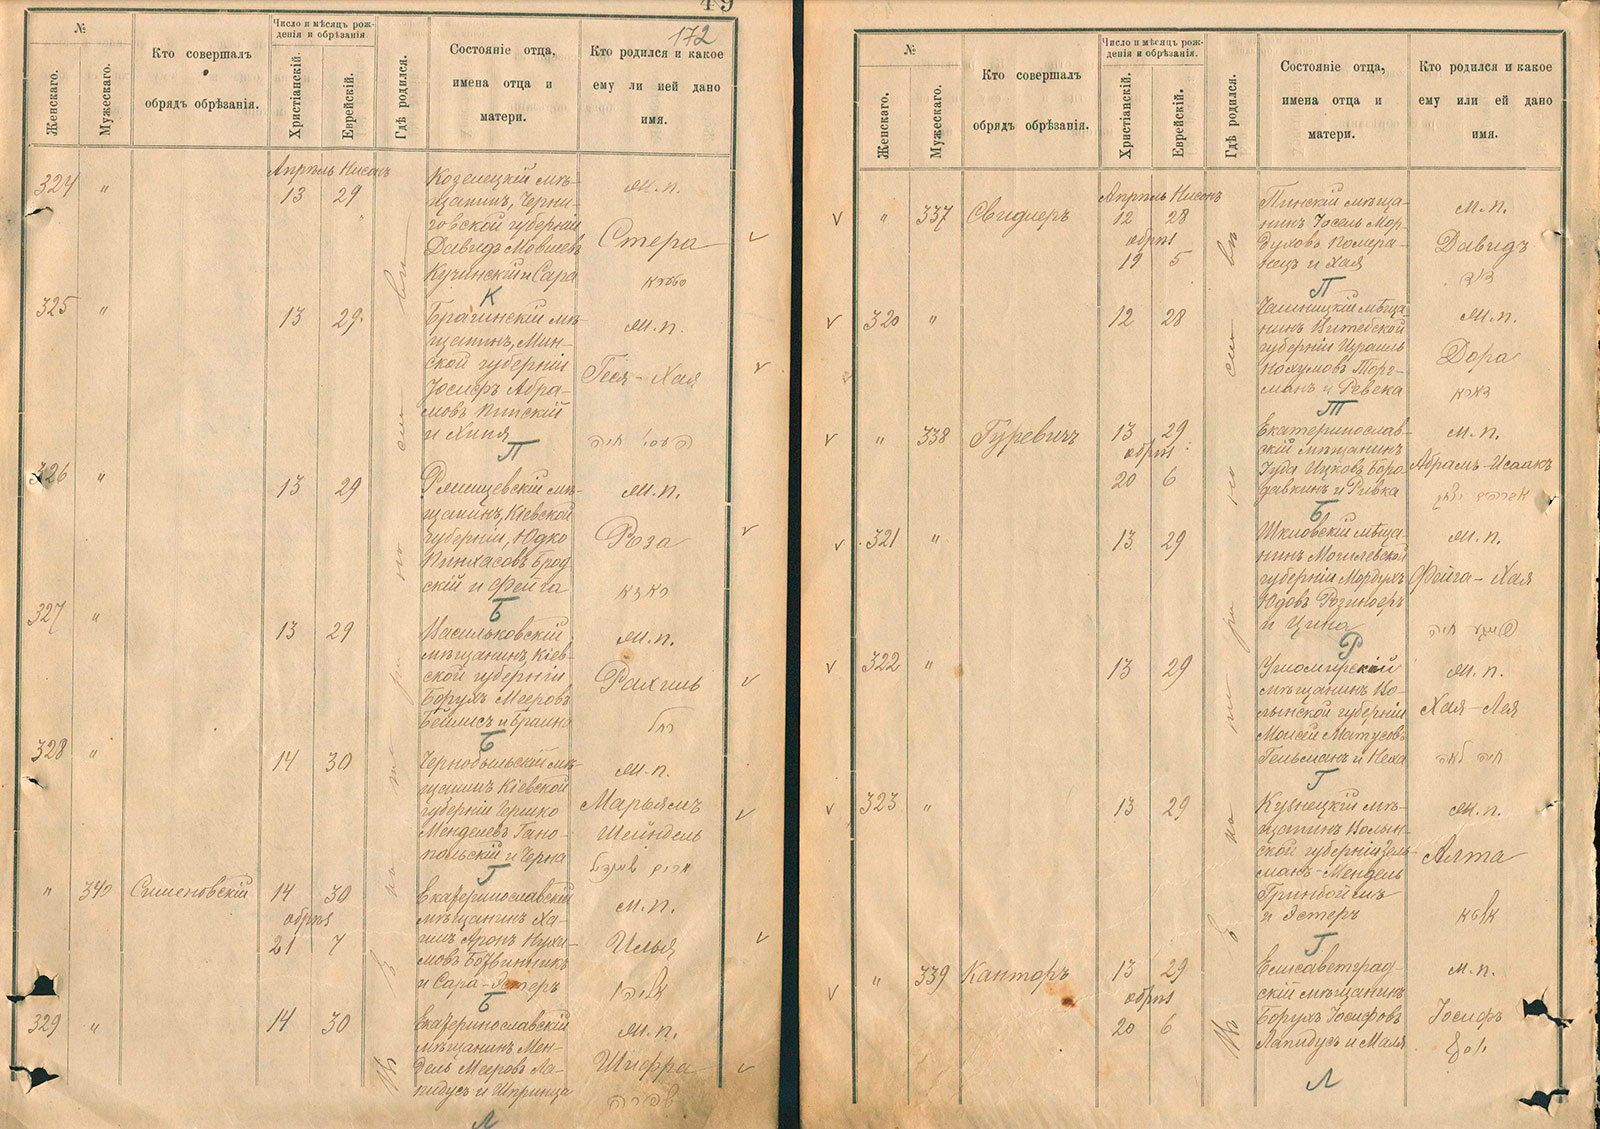 49
172
№
Женскаго.
Мужескаго.
Кто совершалъ
обрядъ обрѣзанія.
Число и мѣсяцъ рож-
денія и обрѣзанія.
Христіанскій.
Еврейскій.
Гдѣ родился.
Состояніе отца,
имена отца и
матери.
Кто родился и какое
ему ли ней дано
имя.
324 "
Апрѣль Нисонъ
13 29
Козелецкій мѣ-
щанинъ, Черни-
говской губерніи
Давидъ Мовшевъ
Кучинскій и Сара
К
м.п.
Стера
סטערא
325 "
13 29
Брагинскій мѣ-
щанинъ, Мин-
ской губерніи
Іосифъ Абра-
мовъ Пинскій
и Хиня
П
м.п.
Геся-Хая
העסי חיה
326 "
13 29
щанинъ, Кіевской
губерніи, Юдко
Пинхасовъ Брод
скій и Фейга
Б
м.п.
Роза
ראזא
327 "
13 29
Васильковскій
мѣщанинъ, Кіев-
ской губерніи
Борухъ Мееровъ
Бейлисъ и Браина
Б
м.п.
Рахиль
רחל
328 "
14 30
Чернобыльскій мѣ-
щанинъ Кіевской
губерніи Гершко
Менделевъ Гано-
польскій и Черна
Г
м.п.
Марьямъ
Шейндель
מרים שיינדל
" 340 Сименовскій
14 30
обрѣз
21 7
Екатеринославскій
мѣщанинъ Ха-
имъ Аронъ Нухи-
мовъ Ботвинникъ
и Сара-Эстеръ
Б
м.п.
Илья
אליהו
329 "
14 30
Екатеринославскій
мѣщанинъ Мен-
дель Мееровъ Ла-
пидусъ и Шпринца
Л
м.п.
Шифра
שפרה
Въ катеринославли
№
Женскаго.
Мужескаго.
Кто совершалъ
обрядъ обрѣзанія.
Число и мѣсяцъ рож-
денія и обрѣзанія.
Христіанскій.
Еврейскій.
Гдѣ родился.
Состояніе отца,
имена отца и
матери.
Кто родился и какое
ему или ей дано
имя.
" 337 Свидлеръ
Апрѣль Нисонъ
12 28
обрѣз
19 5
Пинскій мѣща-
нинъ Іосель Мор-
духовъ Помера-
нецъ и Хая
П
м.п.
Давидъ
דוד
320 "
12 28
Чашницкій мѣща
нинъ Витебской
губерніи Израиль
Нохумовъ Торг-
манъ и Ревека
Т
м.п.
Дора
דארא
" 338 Гуревичъ
13 29
обрѣз.
20 6
Екатеринослав-
скій мѣщанинъ
Іуда Ицковъ Боро-
давкинъ и Ривка
Б
м.п.
Абрамъ-Исаакъ
אברהם יצחק
321 "
13 29
Шкловскій мѣща-
нинъ Могилевской
губерніи Мордухъ
Юдовъ Розиноеръ
и Цина
Р
м.п.
Фейга-Хая
פייגע חיה
322 "
13 29
Ушомирскій
мѣщанинъ Во-
лынской губерніи
Моисей Матусовъ
Гельманъ и Неха
Г
м.п.
Хая-Лея
חיה לאה
323 "
13 29
щанинъ Волын-
ской губерніи Зель-
манъ-Мендель
Гринбоймъ
и Эстеръ
Г
м.п.
Алта
אלטא
" 339 Канторъ
13 29
обрѣз
20 6
Елисаветград-
скій мѣщанинъ
Борухъ Іосифовъ
Лапидусъ и Маля
Л
м.п.
Іосифъ
יוסף